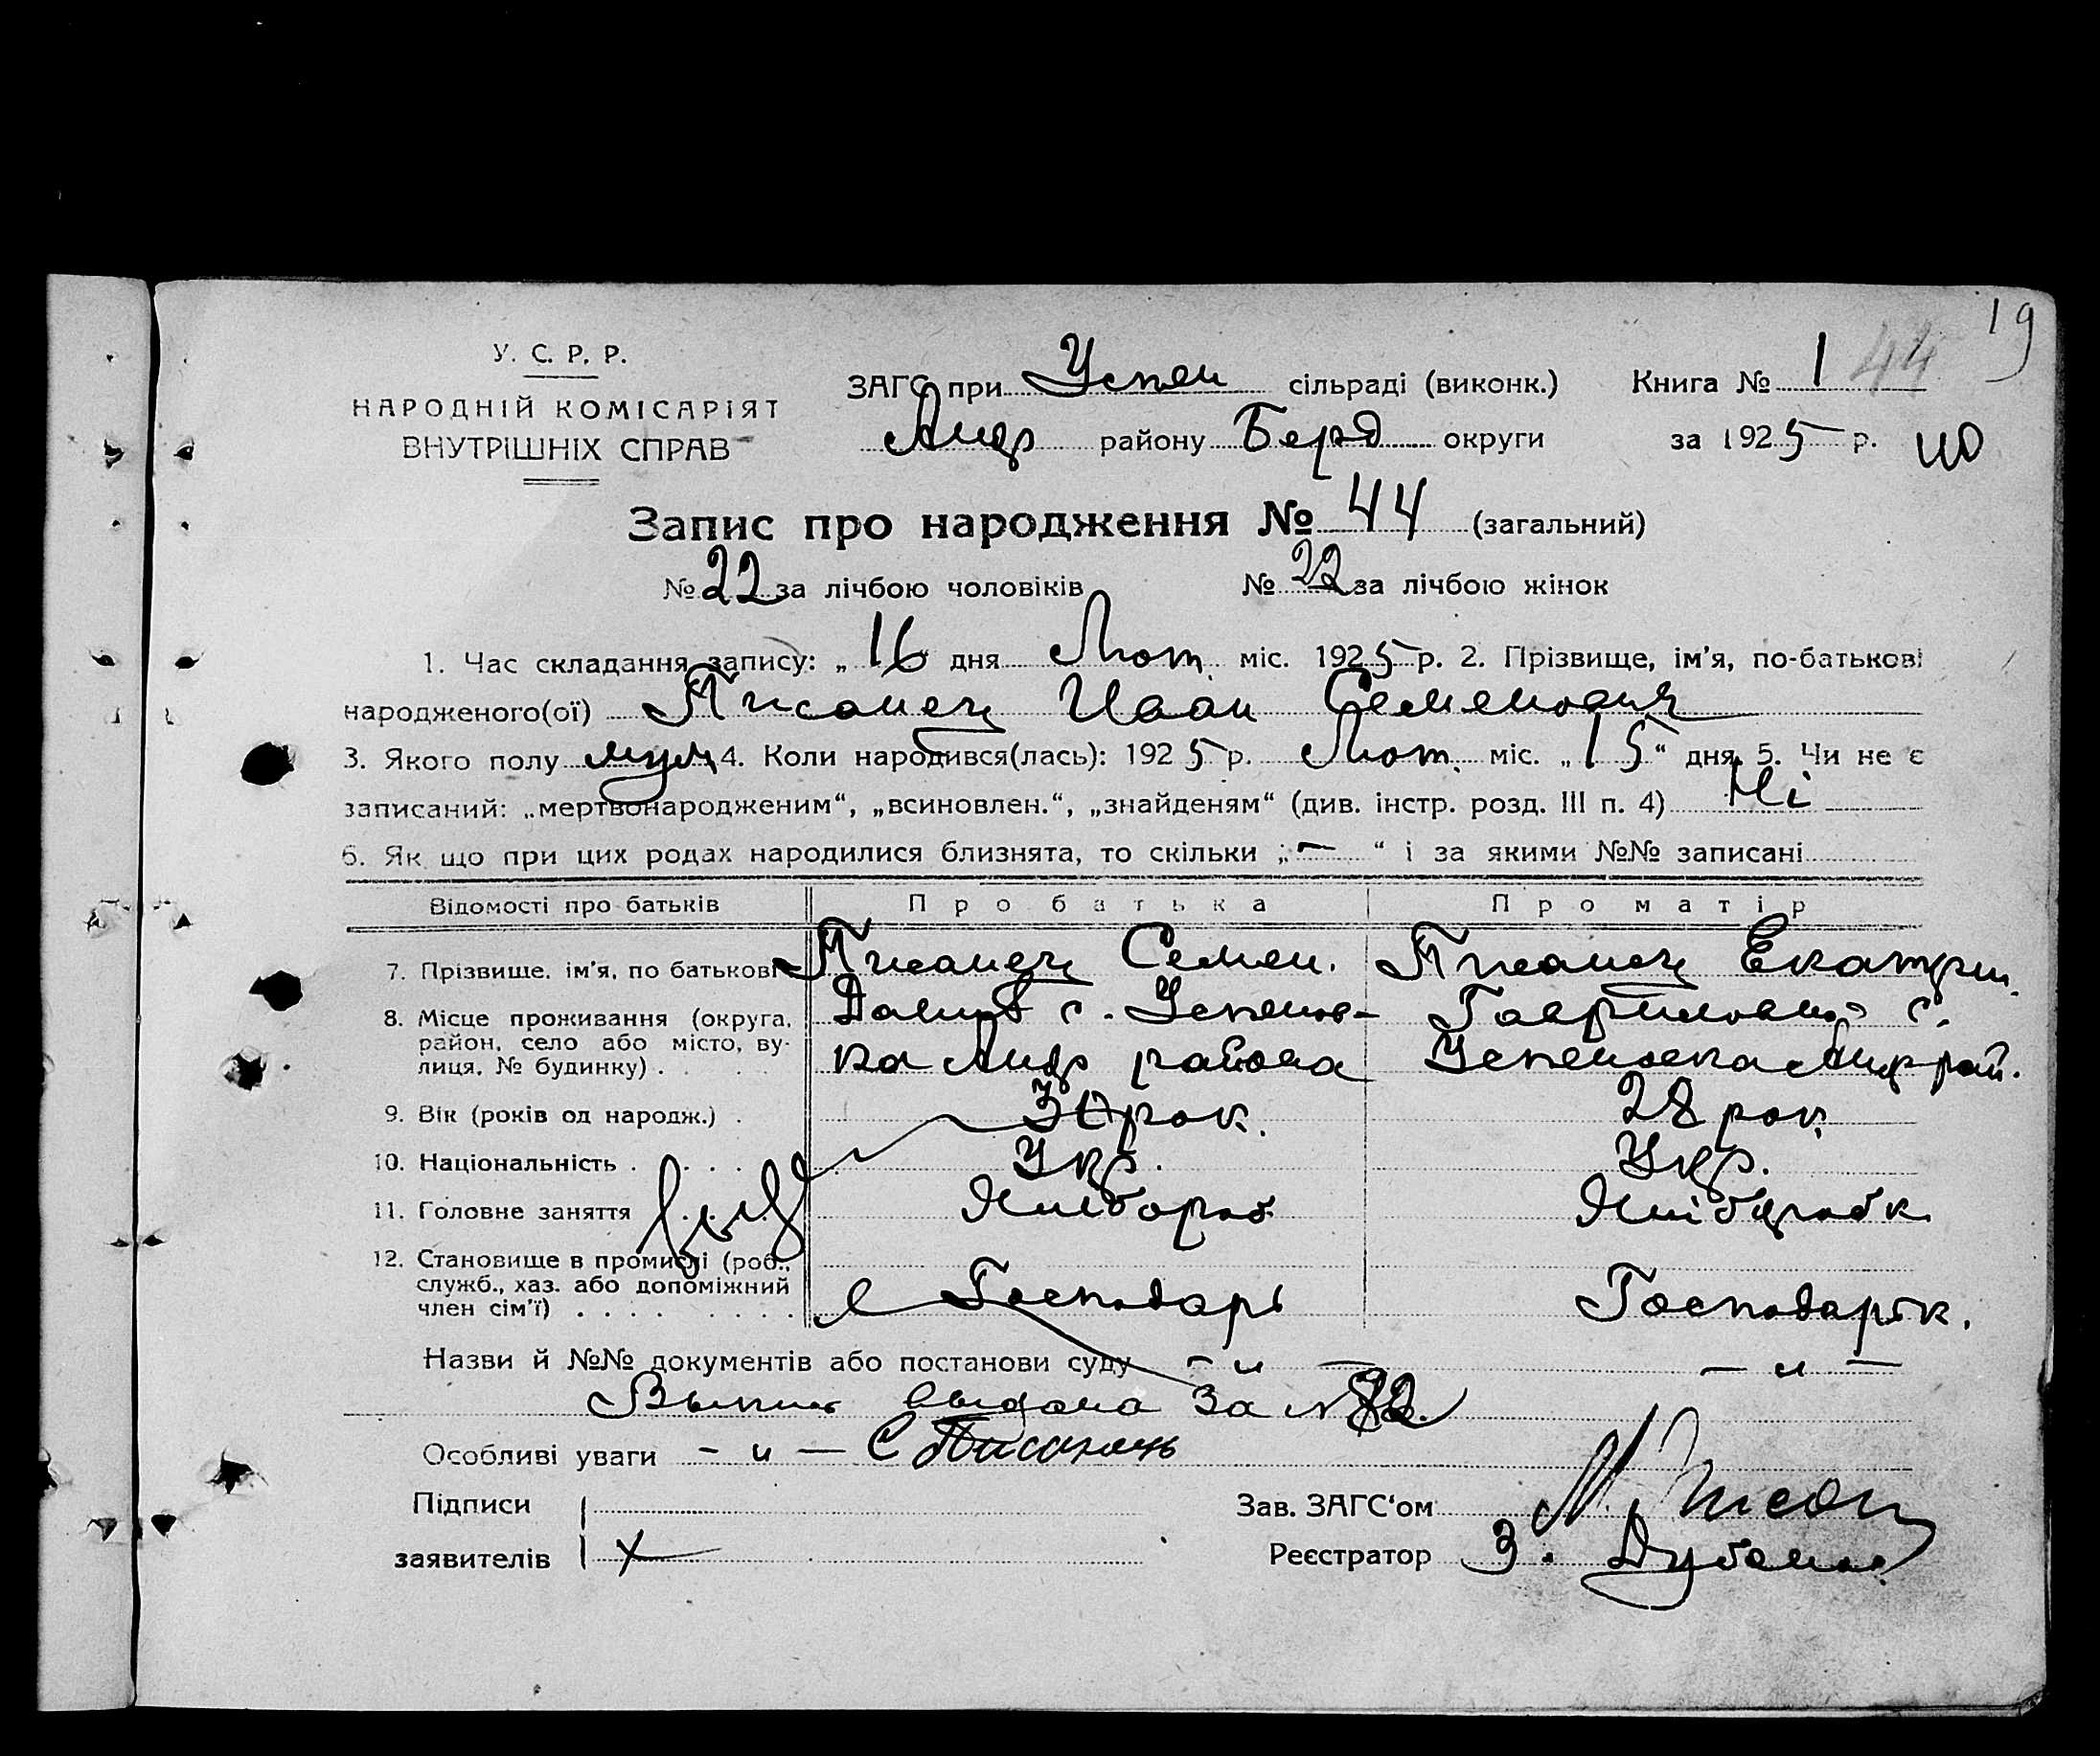 19
У. С. Р. Р.
НАРОДНІЙ КОМІСАРІЯТ
ВНУТРІШНІХ СПРАВ
ЗАГС при Успен сільраді (виконк.) Книга № 1 44
Андр району Берд округи за 1925 р.
Запис про народження № 44 (загальний)
№ 22 за лічбою чоловіків № 22 за лічбою жінок
1. Час складання запису: „16“ дня Лют. міс. 1925 р. 2. Прізвище, ім'я, по-батькові
народженого(ої) Писанец Иван Семенович
3. Якого полу муж 4. Коли народився(лась): 1925 р. Лют. міс. „15“ дня. 5. Чи не є
записаний: „мертвонародженим“, „всиновлен.“, „знайденям“ (див. інстр. розд. III п. 4) Ні
6. Як що при цих родах народилися близнята, то скільки „—“ і за якими №№ записані
Відомості про батьків Про батька Про матір
7. Прізвище, ім'я, по батькові Писанец Семен. Писанец Екатрин.
8. Місце проживання (округа, с. Успенов- Гавриловна с.
район, село або місто, ву- ка Андр района Успеновка Андр рай.
лиця, № будинку)
9. Вік (років од народж.) 30 рок. 28 рок.
10. Національність Укр. Укр.
11. Головне заняття Хлібороб Хліборобк.
12. Становище в промислі (роб.,
служб., хаз. або допоміжний
член сім'ї) Господарь Господарьк.
Назви й №№ документів або постанови суду — " — — " —
Выпис выдана за №
Особливі уваги — " — С Писанець
Підписи Зав. ЗАГС'ом
заявителів Х Реєстратор